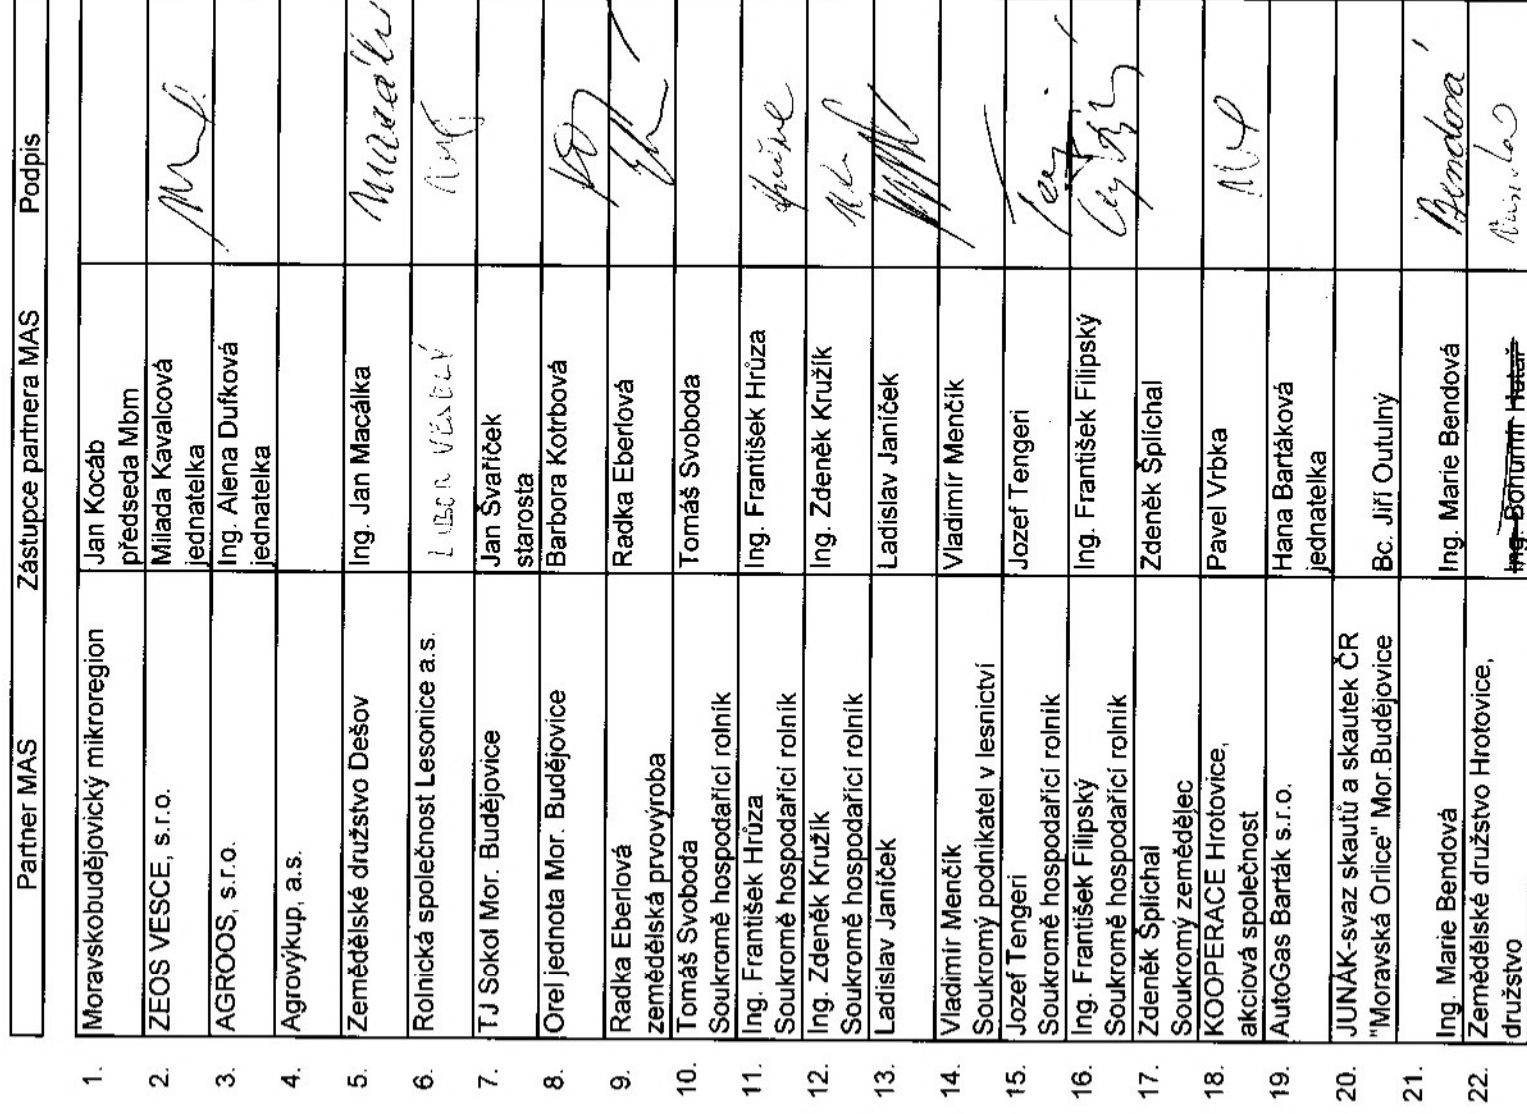 Partner MAS Zástupce partnera MAS Podpis
1. Moravskobudějovický mikroregion Jan Kocáb
předseda Mbm
2. ZEOS VESCE, s.r.o. Milada Kavalcová
jednatelka
3. AGROOS, s.r.o. Ing. Alena Dufková
jednatelka
4. Agrovýkup, a.s.
5. Zemědělské družstvo Dešov Ing. Jan Macálka
6. Rolnická společnost Lesonice a.s. LUBOR VESELÝ
7. TJ Sokol Mor. Budějovice Jan Švaříček
starosta
8. Orel jednota Mor. Budějovice Barbora Kotrbová
9. Radka Eberlová Radka Eberlová
zemědělská prvovýroba
10. Tomáš Svoboda Tomáš Svoboda
Soukromě hospodařící rolník
11. Ing. František Hrůza Ing. František Hrůza
Soukromě hospodařící rolník
12. Ing. Zdeněk Kružík Ing. Zdeněk Kružík
Soukromě hospodařící rolník
13. Ladislav Janíček Ladislav Janíček
14. Vladimír Menčík Vladimír Menčík
Soukromý podnikatel v lesnictví
15. Jozef Tengeri Jozef Tengeri
Soukromě hospodařící rolník
16. Ing. František Filipský Ing. František Filipský
Soukromě hospodařící rolník
17. Zdeněk Šplíchal Zdeněk Šplíchal
Soukromý zemědělec
18. KOOPERACE Hrotovice, Pavel Vrbka
akciová společnost
19. AutoGas Barták s.r.o. Hana Bartáková
jednatelka
20. JUNÁK-svaz skautů a skautek ČR
"Moravská Orlice" Mor.Budějovice Bc. Jiří Outulný
21. Ing. Marie Bendová Ing. Marie Bendová Bendová
22. Zemědělské družstvo Hrotovice,
družstvo Ing. Bohumír Hutař